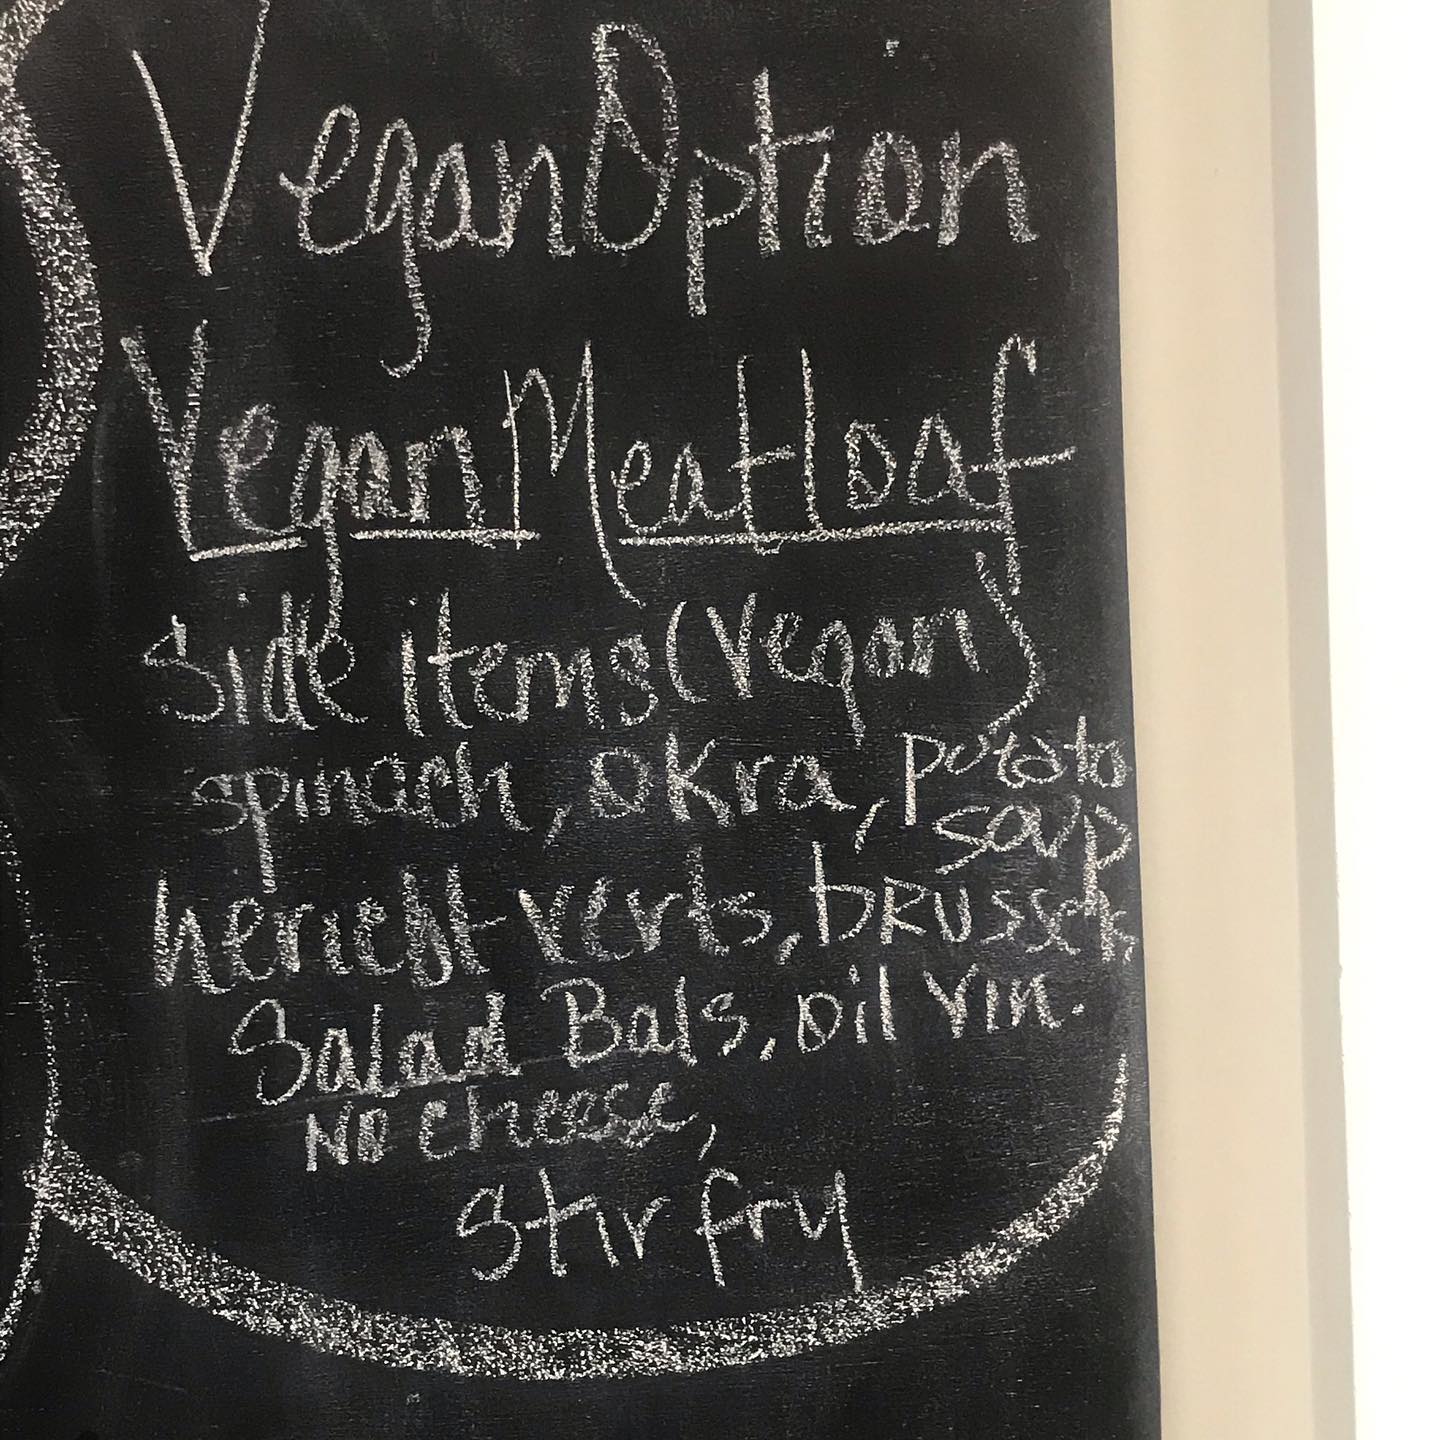 Vegan Option
Vegan Meatloaf
Side items (Vegan)
spinach, okra, potato
soup
hericst verts, brussels,
Salad Bals, oil vin.
No cheese,
Stir fry